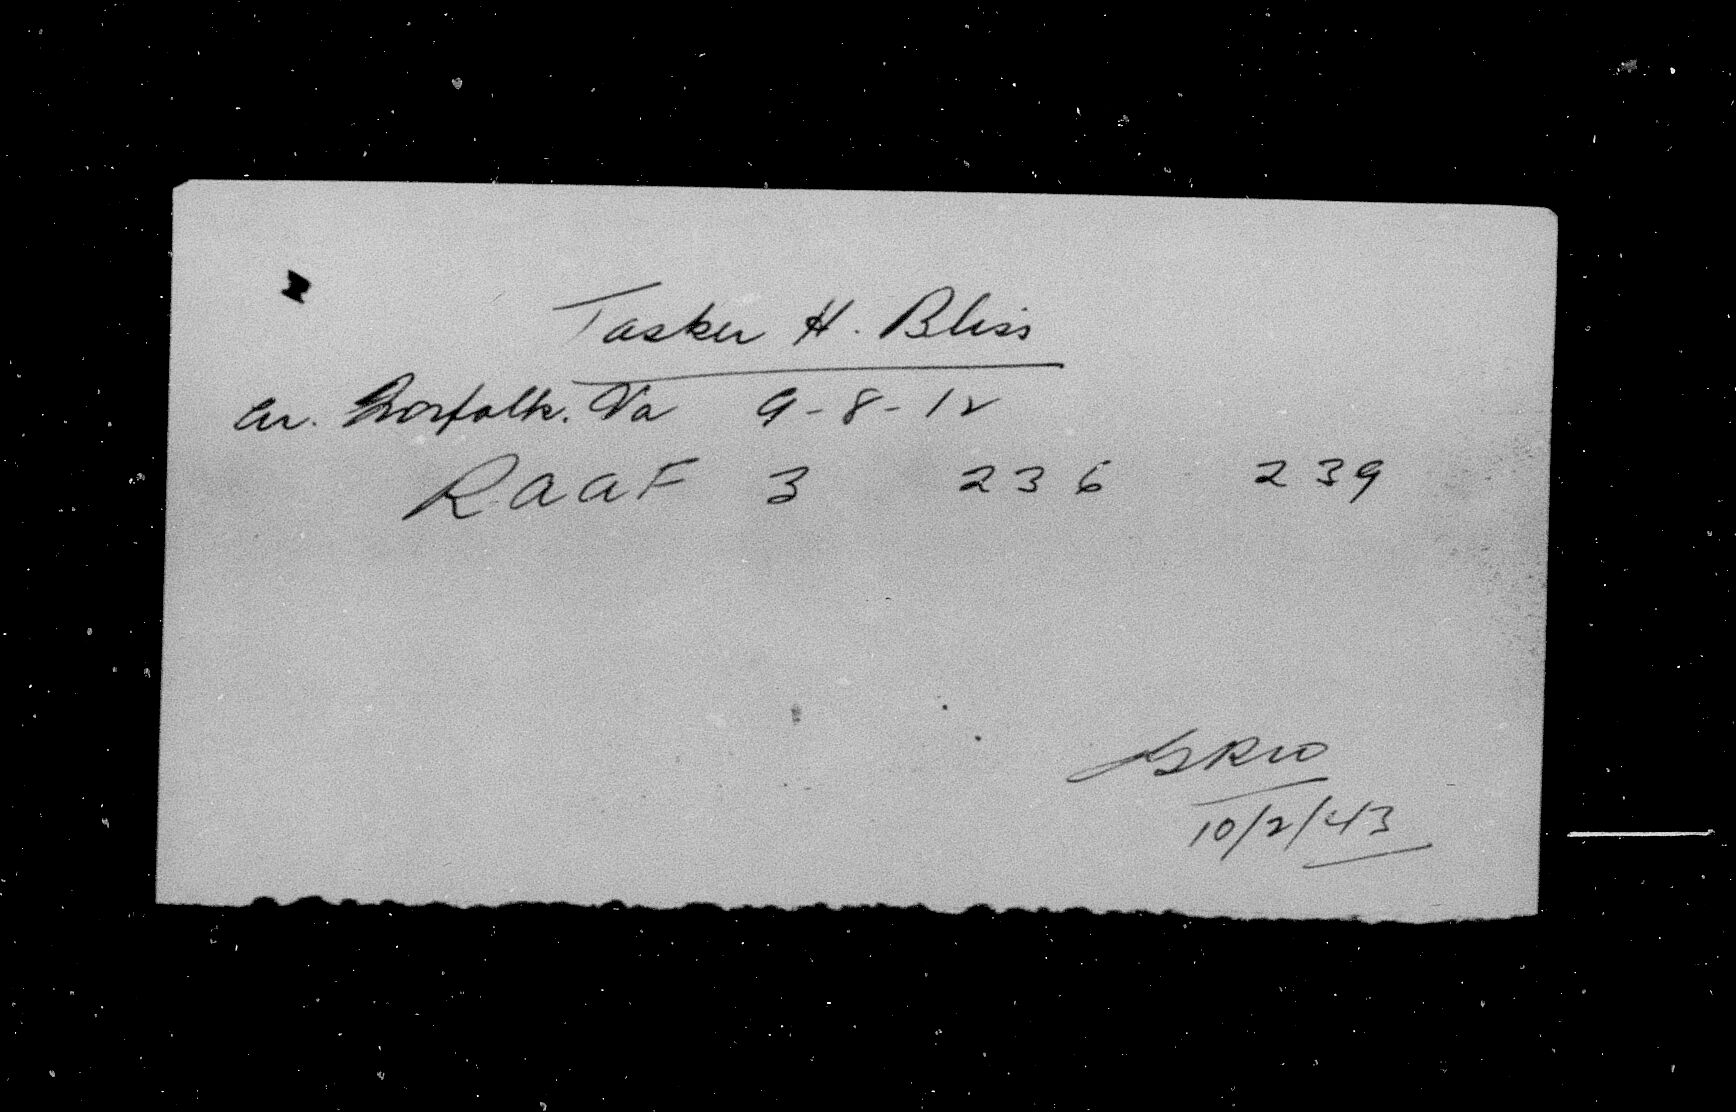 Tasker H. Bliss
Arr. Norfolk. Va 9-8-12
RAAF 3 236 239
10/2/43